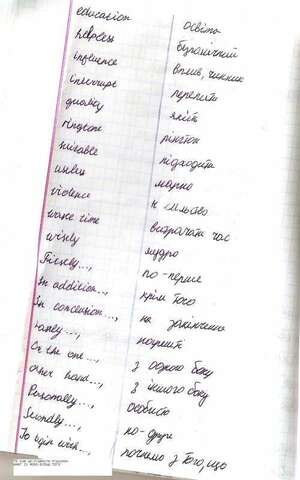 education освіта
helpless безпомічний
influence вплив, чинник
interrupt
quality якість
ringtone рінгтон
suitable підходити
useless марно
violence насильство
waste time витрачати час
wisely мудро
Firstly..., по-перше
In addition..., крім того
In conclusion..., на закінчення
Lastly...,
On the one..., з одного боку
other hand..., з іншого боку
Personally..., особисто
Secondly..., по-друге
To begin with..., почнемо з того, що